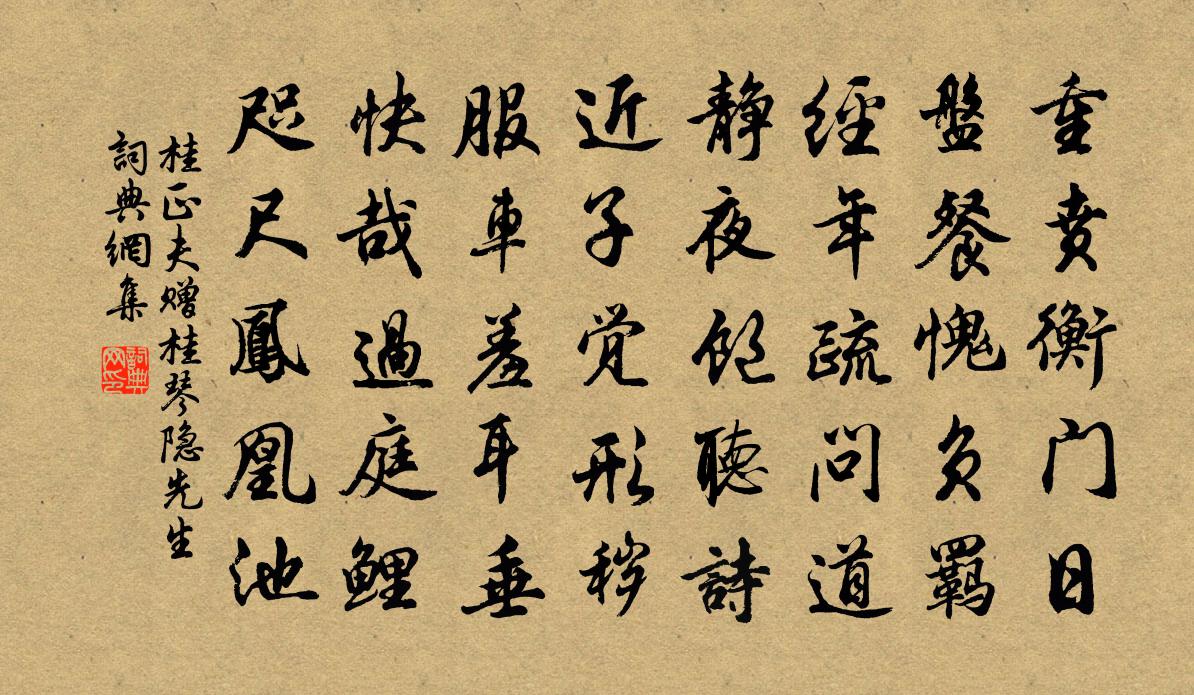 重賁衡门日
盤餐愧負羁
經年疏問道
静夜飽聽詩
近子觉形秽
服車羞耳垂
快哉過庭鯉
咫尺鳳凰池
桂正夫赠桂琴隐先生
詞典網集
詞典网印